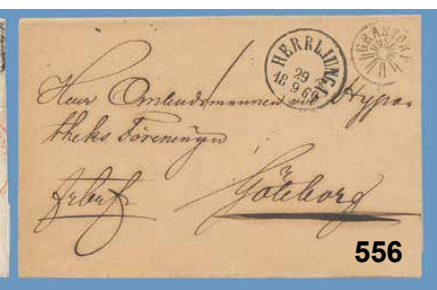 HERRLJUNGA
29
18 9 66
GRÄSTORP
Herr Ombudsmannen vid Hypo-
theks Föreningen
Frbref
Göteborg
556